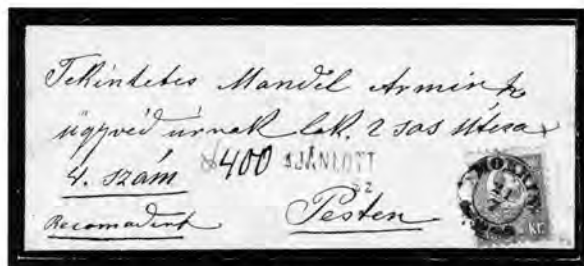 Tekintetes Mandel Armin
ügyvéd úrnak lak. 2 sas útcza
4. szám 400 AJÁNLOTT
Recomadirt Pesten
KR